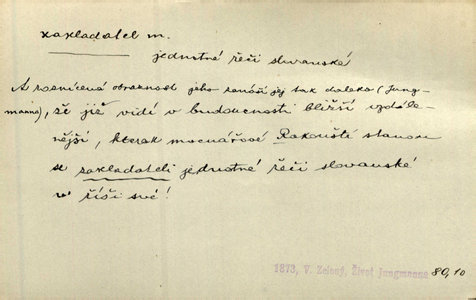 zakladatel m.
jednotné řeči slovanské
A roznícená obraznost jeho zanáší jej tak daleko (Jung-
manna), že již vidí v budoucnosti bližší vzdále-
nější, kterak mocnářové Rakouští stanou
se zakladateli jednotné řeči slovanské
v říši své!
1873, V. Zelený, Život Jungmanna 80,10